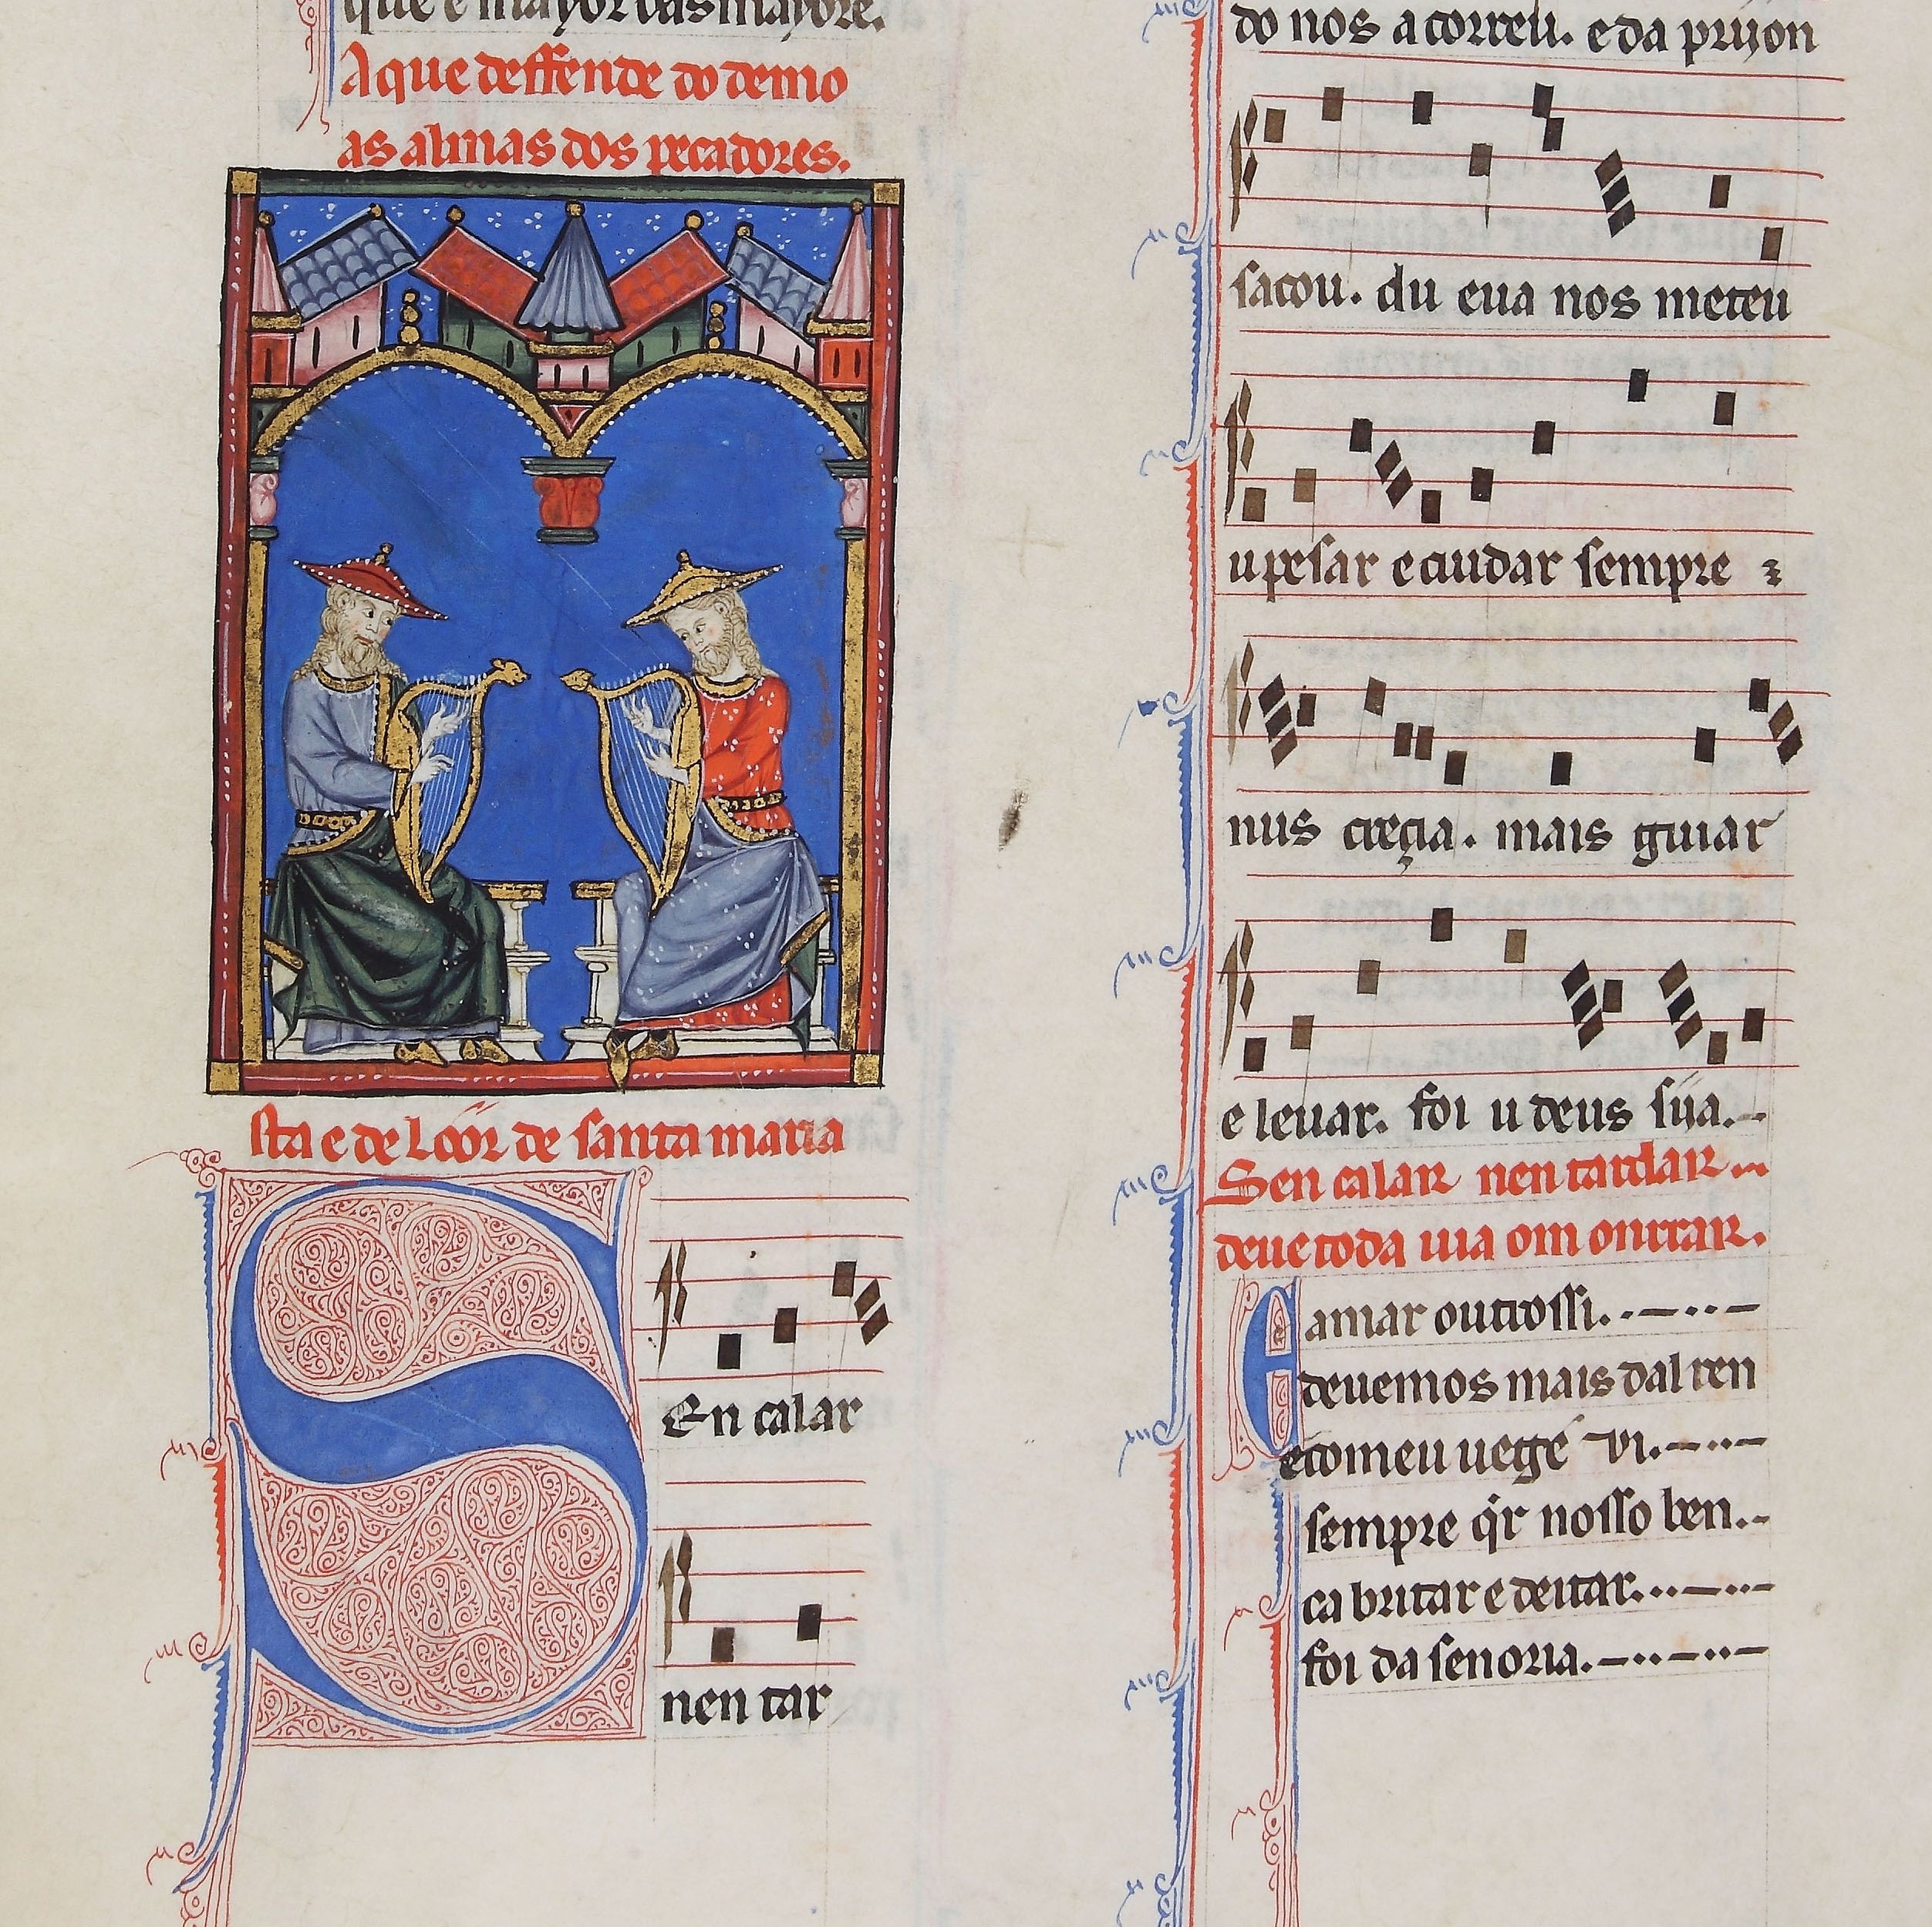 que e mayor das mayores.
A que deffende do demo
as almas dos pecadores.
sta e de Loor de santa maria
SEn calar
nen tar
do nos acorreu. e da prijon
sacou. du eua nos meteu
u pesar e cuidar sempre ⁊
nus creçia. mais guiar
e leuar. foi u deus sija.
Sen calar nen tardar
deue toda uia om onrrar.
E amar outrossi.
deuemos mais dal ren
e com eu uegé vi.
sempre qr nosso ben.
ca britar e deitar
foi da senoria.